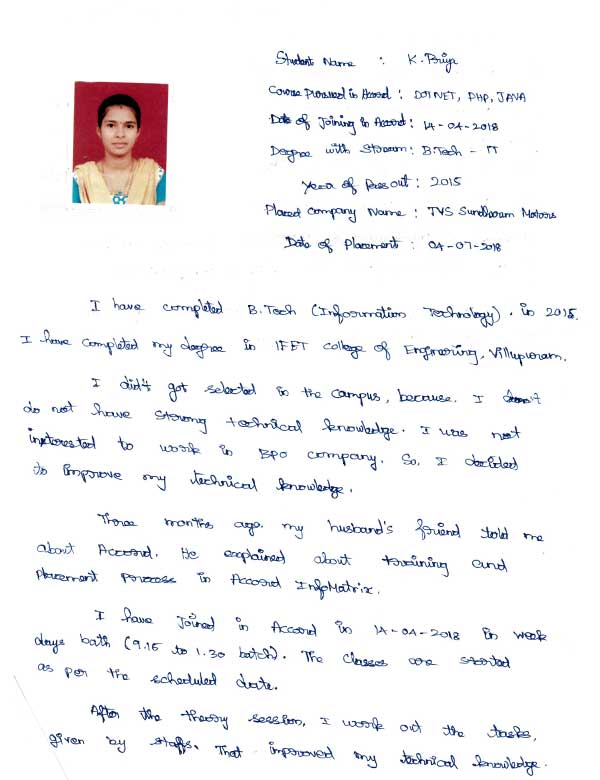 Student Name : K. Priya
Course Pursued in Accord : DOTNET, PHP, JAVA
Date of Joining in Accord : 14-04-2018
Degree with Stream : B.Tech - IT
Year of Pass out : 2015
Placed Company Name : TVS Sundharam Motors
Date of Placement : 04-07-2018
I have completed B.Tech (Information Technology). in 2015.
I have completed my degree in IFET college of Engineering, Villupuram.
I didn't got selected in the campus, because. I
do not have strong technical knowledge. I was not
interested to work in BPO company. So, I decided
to improve my technical knowledge.
Three months ago. my husband's friend told me
about Accord. He explained about training and
Placement process in Accord InfoMatrix.
I have Joined in Accord in 14-04-2018 in week
days bath (9.15 to 1.30 batch). The classes are started
as per the scheduled date.
After the theory session, I work out the tasks,
given by staffs. That improved my technical knowledge.